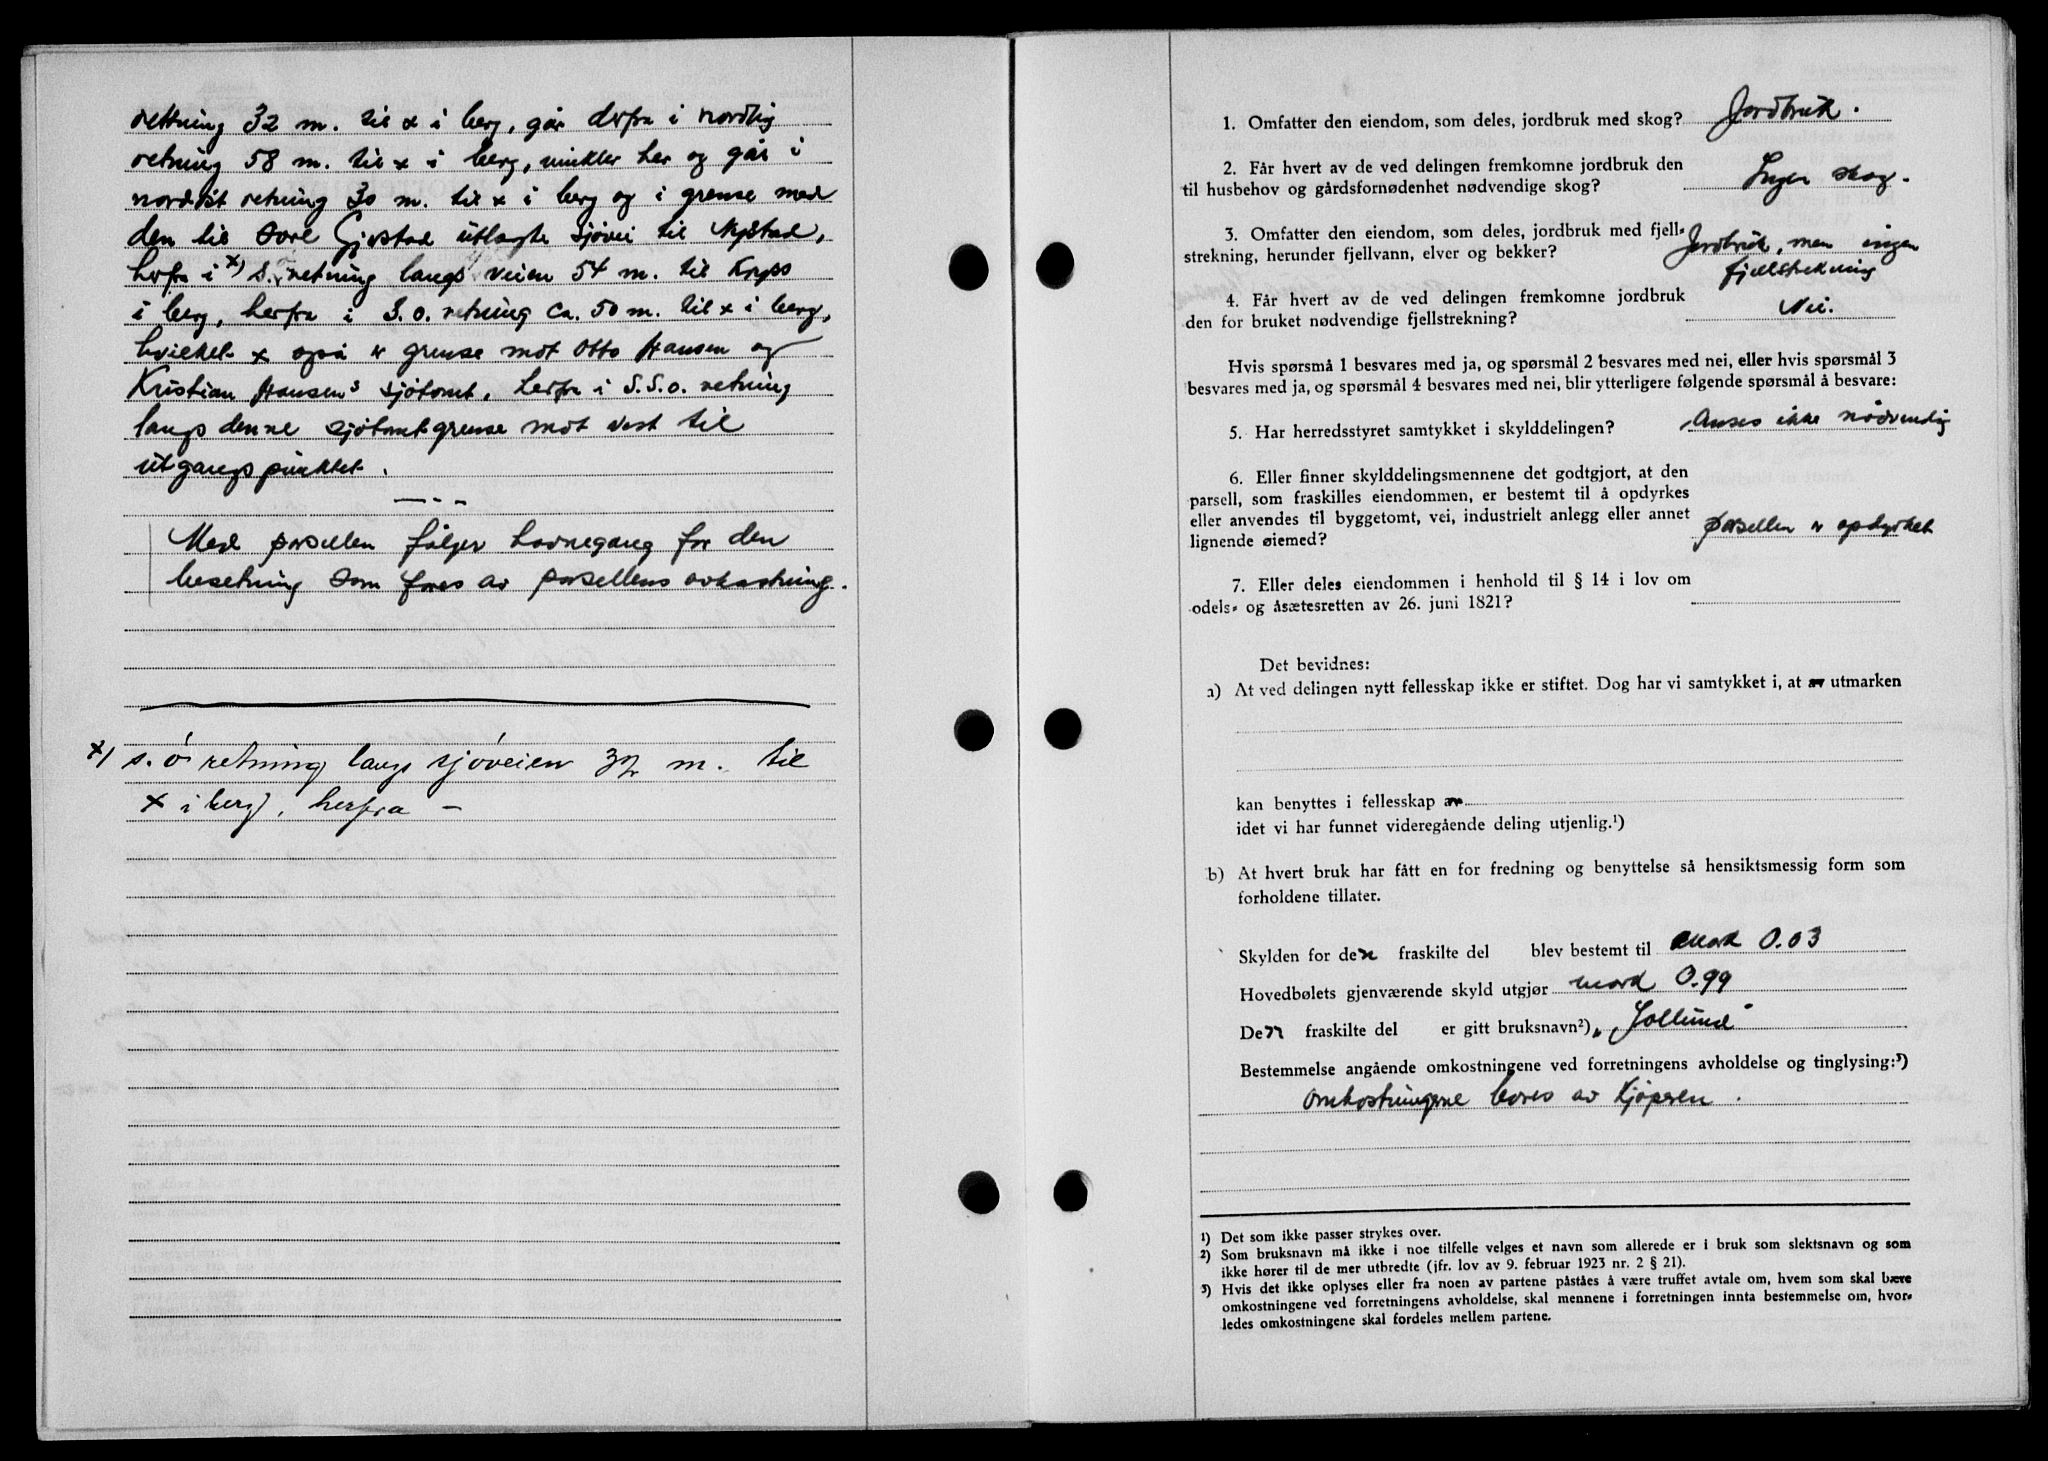 rettning 32 m. til x i berg, går derfra i nordlig
retning 58 m. til x i berg, vinkler her og går i
nordøst retning 30 m. til x i berg og i grense med
den til Tore Gjerstad utlagte sjøvei til Nystad,
herfra i x) S. retning langs veien 54 m. til Kryss
i berg, herfra i S.O. retning ca. 50 m. til x i berg,
hvilket x også er grense mot Otto Hansen og
Kristian Hansens sjøtomt, herfra i S.S.O. retning
langs denne sjøtomt grense mot vest til
utgangspunktet.
Med parsellen følger havnegang for den
besetning som fores av parsellens avkastning.
x) s.ø retning langs sjøveien 32 m. til
x i berg, herfra –
1. Omfatter den eiendom, som deles, jordbruk med skog? Jordbruk.
2. Får hvert av de ved delingen fremkomne jordbruk den
til husbehov og gårdsfornødenhet nødvendige skog? Ingen skog.
3. Omfatter den eiendom, som deles, jordbruk med fjell-
strekning, herunder fjellvann, elver og bekker? Jordbruk, men ingen
fjellstrekning
4. Får hvert av de ved delingen fremkomne jordbruk
den for bruket nødvendige fjellstrekning? Nei.
Hvis spørsmå 1 besvares med ja, og spørsmål 2 besvares med nei, eller hvis spørsmål 3
besvares med ja, og spørsmål 4 besvares med nei, blir ytterligere følgende spørsmål å besvare:
5. Har herredsstyret samtykket i skylddelingen? Anses ikke nødvendig
6. Eller finner skylddelingsmennene det godtgjort, at den
parsell, som fraskilles eiendommen, er bestemt til å opdyrkes
eller anvendes til byggetomt, vei, industrielt anlegg eller annet
lignende øiemed? Parsellen er opdyrket
7. Eller deles eiendommen i henhold til § 14 i lov om
odels- og åsætesretten av 26. juni 1821?
Det bevidnes:
a) At ved delingen nytt fellesskap ikke er stiftet. Dog har vi samtykket i, at av utmarken
kan benyttes i fellesskap av
idet vi har funnet videregående deling utjenlig.¹)
b) At hvert bruk har fått en for fredning og benyttelse så hensiktsmessig form som
forholdene tillater.
Skylden for den fraskilte del blev bestemt til mark 0.03
Hovedbølets gjenværende skyld utgjør mark 0.99
Den fraskilte del er gitt bruksnavn²) „Sollund"
Bestemmelse angående omkostningene ved forretningens avholdelse og tinglysing:³)
omkostningene bæres av Kjøperen.
¹) Det som ikke passer strykes over.
²) Som bruksnavn må ikke i noe tilfelle velges et navn som allerede er i bruk som slektsnavn og som
ikke hører til de mer utbredte (jfr. lov av 9. februar 1923 nr. 2 § 21).
³) Hvis det ikke oplyses eller fra noen av partene påståes å være truffet avtale om, hvem som skal bære
omkostningene ved forretningens avholdelse, skal mennene i forretningen innta bestemmelse om, hvor-
ledes omkostningene skal fordeles mellem partene.